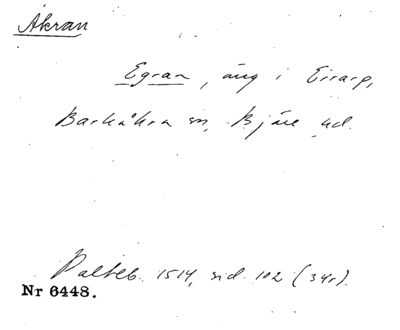 Åkran
Egran, äng i Eirarp,
Barkåkra sn, Bjäre hd.
Palteb. 1514, sid. 102 (34r).
Nr 6448.